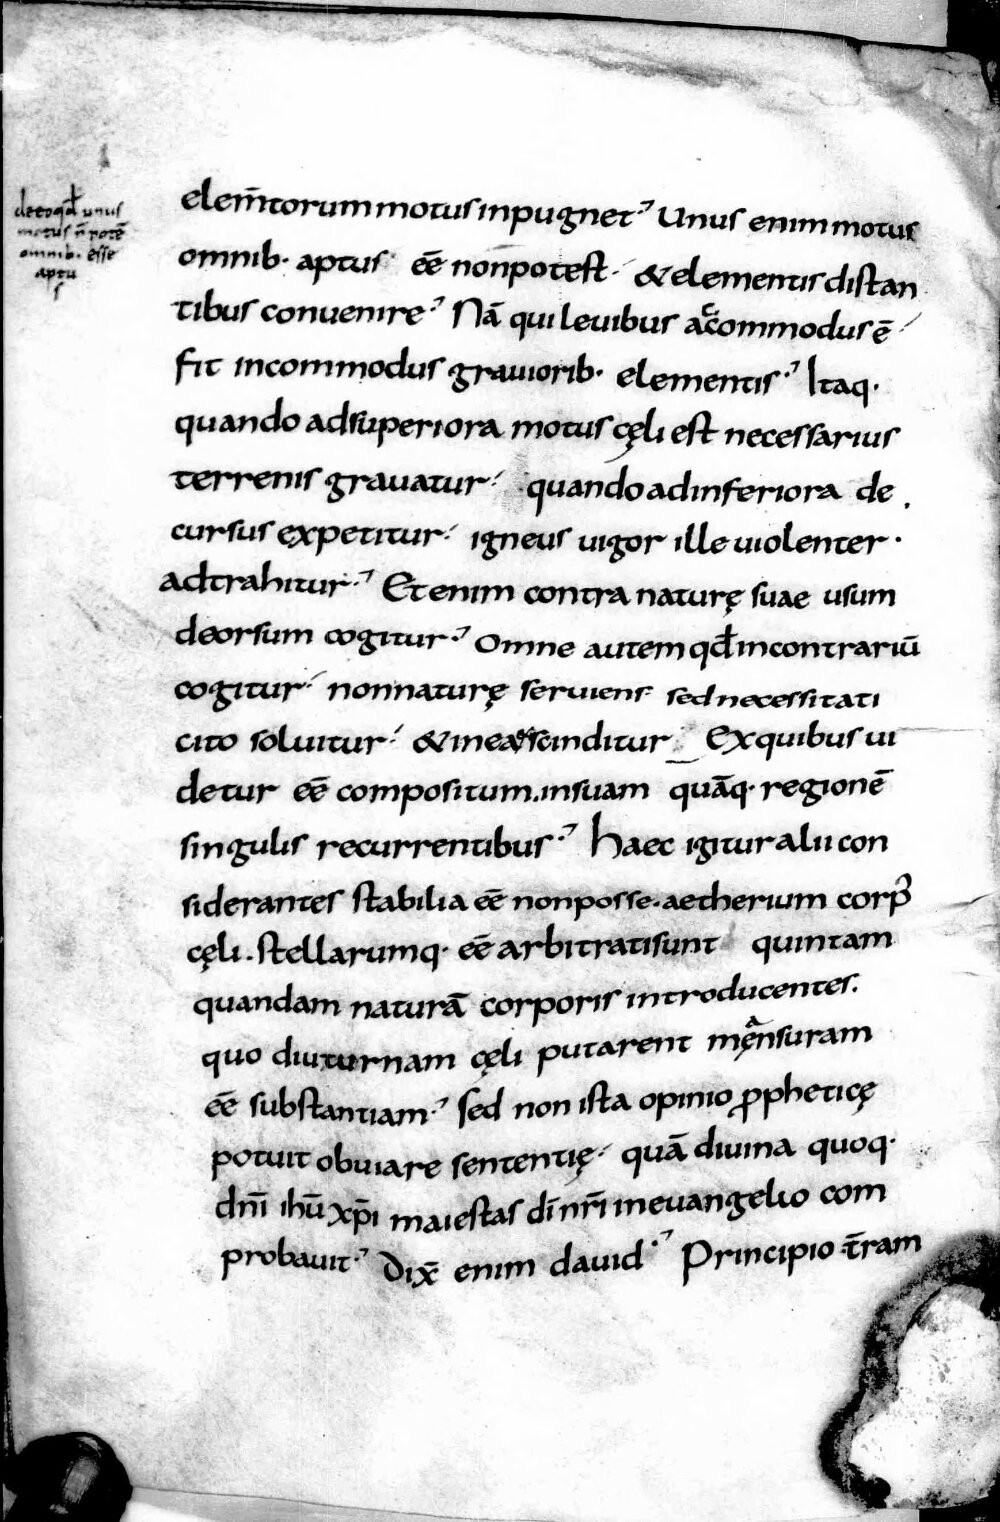 de eo qđ unus
motus n̄ potē
omnib· esse
aptu
s
elem̄torum motus inpugnet? Unus enim motus
omnib· aptus eē̄ non potest· & elementis distan
tibus conuenire? Nā qui leuibus accommodus ē
fit incommodus grauiorib· elementis? Itaq·
quando ad superiora motus cęli est necessarius
terrenis grauatur· quando ad inferiora de
cursus expetitur· igneus uigor ille uiolenter·
adtrahitur? Etenim contra naturę suae usum
deorsum cogitur? Omne autem qđ in contrariū
cogitur· non naturę seruiens sed necessitati
cito soluitur· & in ea scinditur Ex quibus ui
detur eē compositum. in suam quāq· regionē
singulis recurrentibus? Haec igitur alii con
siderantes stabilia eē non posse. aetherium corp̉
cęli. stellarumq· eē arbitrati sunt quintam
quandam naturā corporis introducentes.
quo diuturnam cęli putarent męnsuram
eē substantiam? Sed non ista opinio ꝓpheticę
potuit obuiare sententię· quā diuina quoq·
dn̄i ihū xp̄i maiestas dī nr̄i in euangelio com
probauit? Dix̄ enim dauid? Principio t̄ram